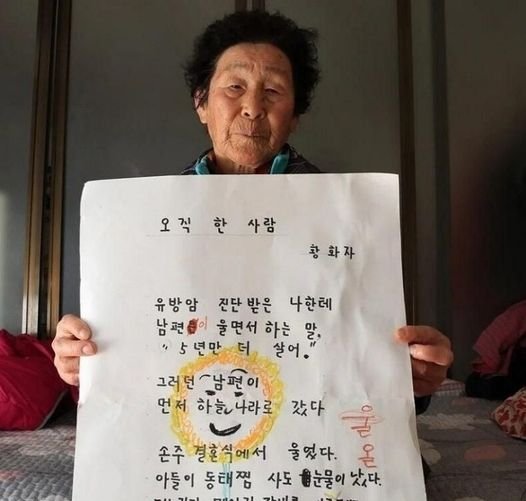 오직 한 사람
황화자
유방암 진단 받은 나한테
남편이 울면서 하는 말,
"5년만 더 살어."
그러던 남편이
먼저 하늘 나라로 갔다
손주 결혼식에서 울었다.
아들이 동태찜 사도 눈물이 났다.
울